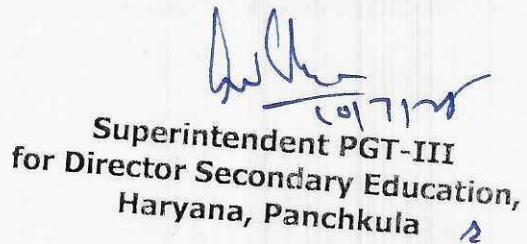 10/7/25
Superintendent PGT-III
for Director Secondary Education,
Haryana, Panchkula